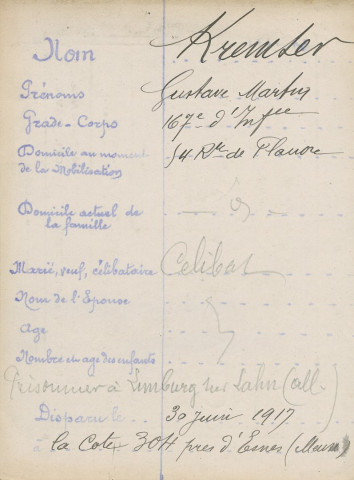 Nom Kremser
Prénoms Gustave Martin
Grade-Corps 167e d'Infie
Domicile au moment de la Mobilisation 54 Rte de Plappe
Domicile actuel de la famille
Marié, veuf, célibataire Célibat
Nom de l'Epouse
Age
Nombre et age des enfants
Prisonnier à Limburg sur Lahn (All.
Disparu le 30 juin 1917
à la Cote 304 près d'Esnes (Meuse)